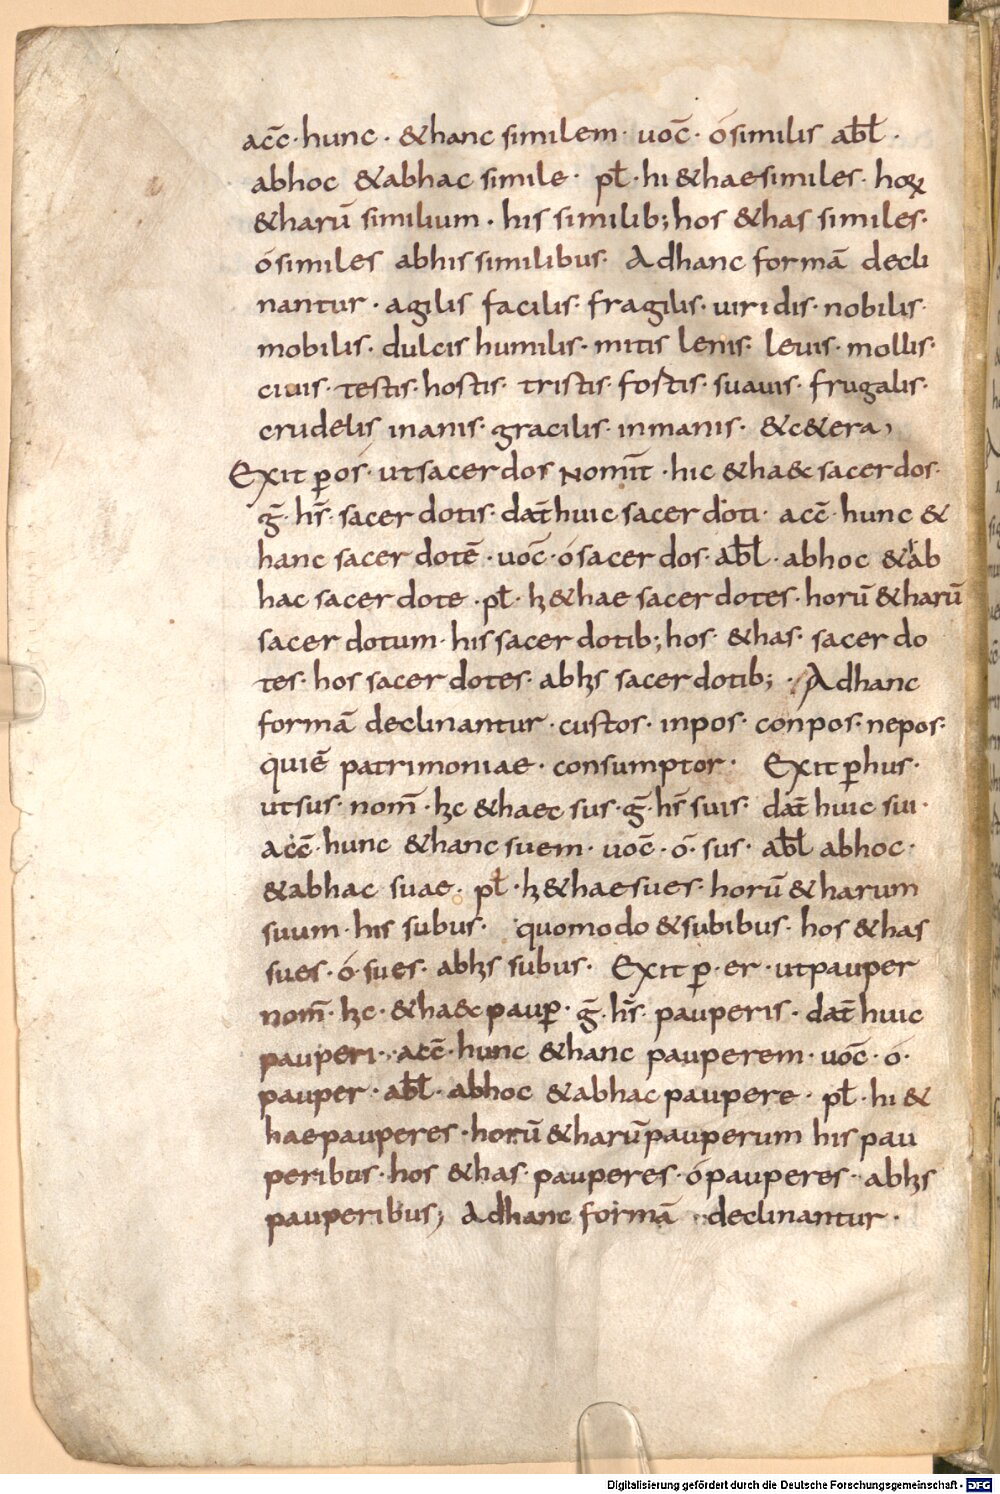 acc̄· hunc · &hanc similem · uoc̄ · ósimilis abl̄ ·
abhoc &abhac simile · pl̄ · hi &haesimiles · hoꝝ
&harū similium · his similib; hos &has similes·
ósimiles abhissimilibus· Adhanc formā decli
nantur · agilis facilis· fragilis· uiridis· nobilis·
mobilis· dulcis humilis· mitis lenis· leuis· mollis·
ciuis· testis· hostis· tristis· fostis· suauis· frugalis·
crudelis inanis· gracilis· inmanis· &c&era,
Exit ꝑos· utsacerdos nomīt · hic &ha&c sacerdos·
ḡ· hs̄· sacerdotis· dat̄ huic sacerdoti· acc̄· hunc &
hanc sacerdotē · uoc̄ · ósacerdos· abl̄ · abhoc &ab
hac sacerdote · pl̄· hi &hae sacerdotes· horū &harū
sacerdotum· hissacerdotib; hos· &has· sacerdo
tes· hos sacerdotes· abhis sacerdotib; · Adhanc
formā declinantur · custos· inpos· conpos· nepos·
quiē patrimoniae · consumptor · Exit ꝑhus·
utsus· nom̄ · hic &haec sus · ḡ· hs̄ suis· dat̄ huic sui·
acc̄· hunc &hanc suem · uoc̄ · ó· sus· abl̄ abhoc·
&abhac suae· pl̄ · hi &haesues· horū &harum
suum · his subus· quomodo &subibus· hos &has
sues· ó· sues· abhis subus· Exit ꝑ· er · utpauper
nom̄· hic · &ha&c pauꝑ· ḡ· hs̄· pauperis · dat̄ huic
pauperi· acc̄· hunc &hanc pauperem · uoc̄ · ó·
pauper · abl̄· abhoc &abhac paupere · pl̄ · hi &
haepauperes · horū &harūpauperum his pau
peribus · hos &has· pauperes· ópauperes· abhis
pauperibus; Adhanc formā declinantur ·
Digitalisierung gefördert durch die Deutsche Forschungsgemeinschaft - DFG